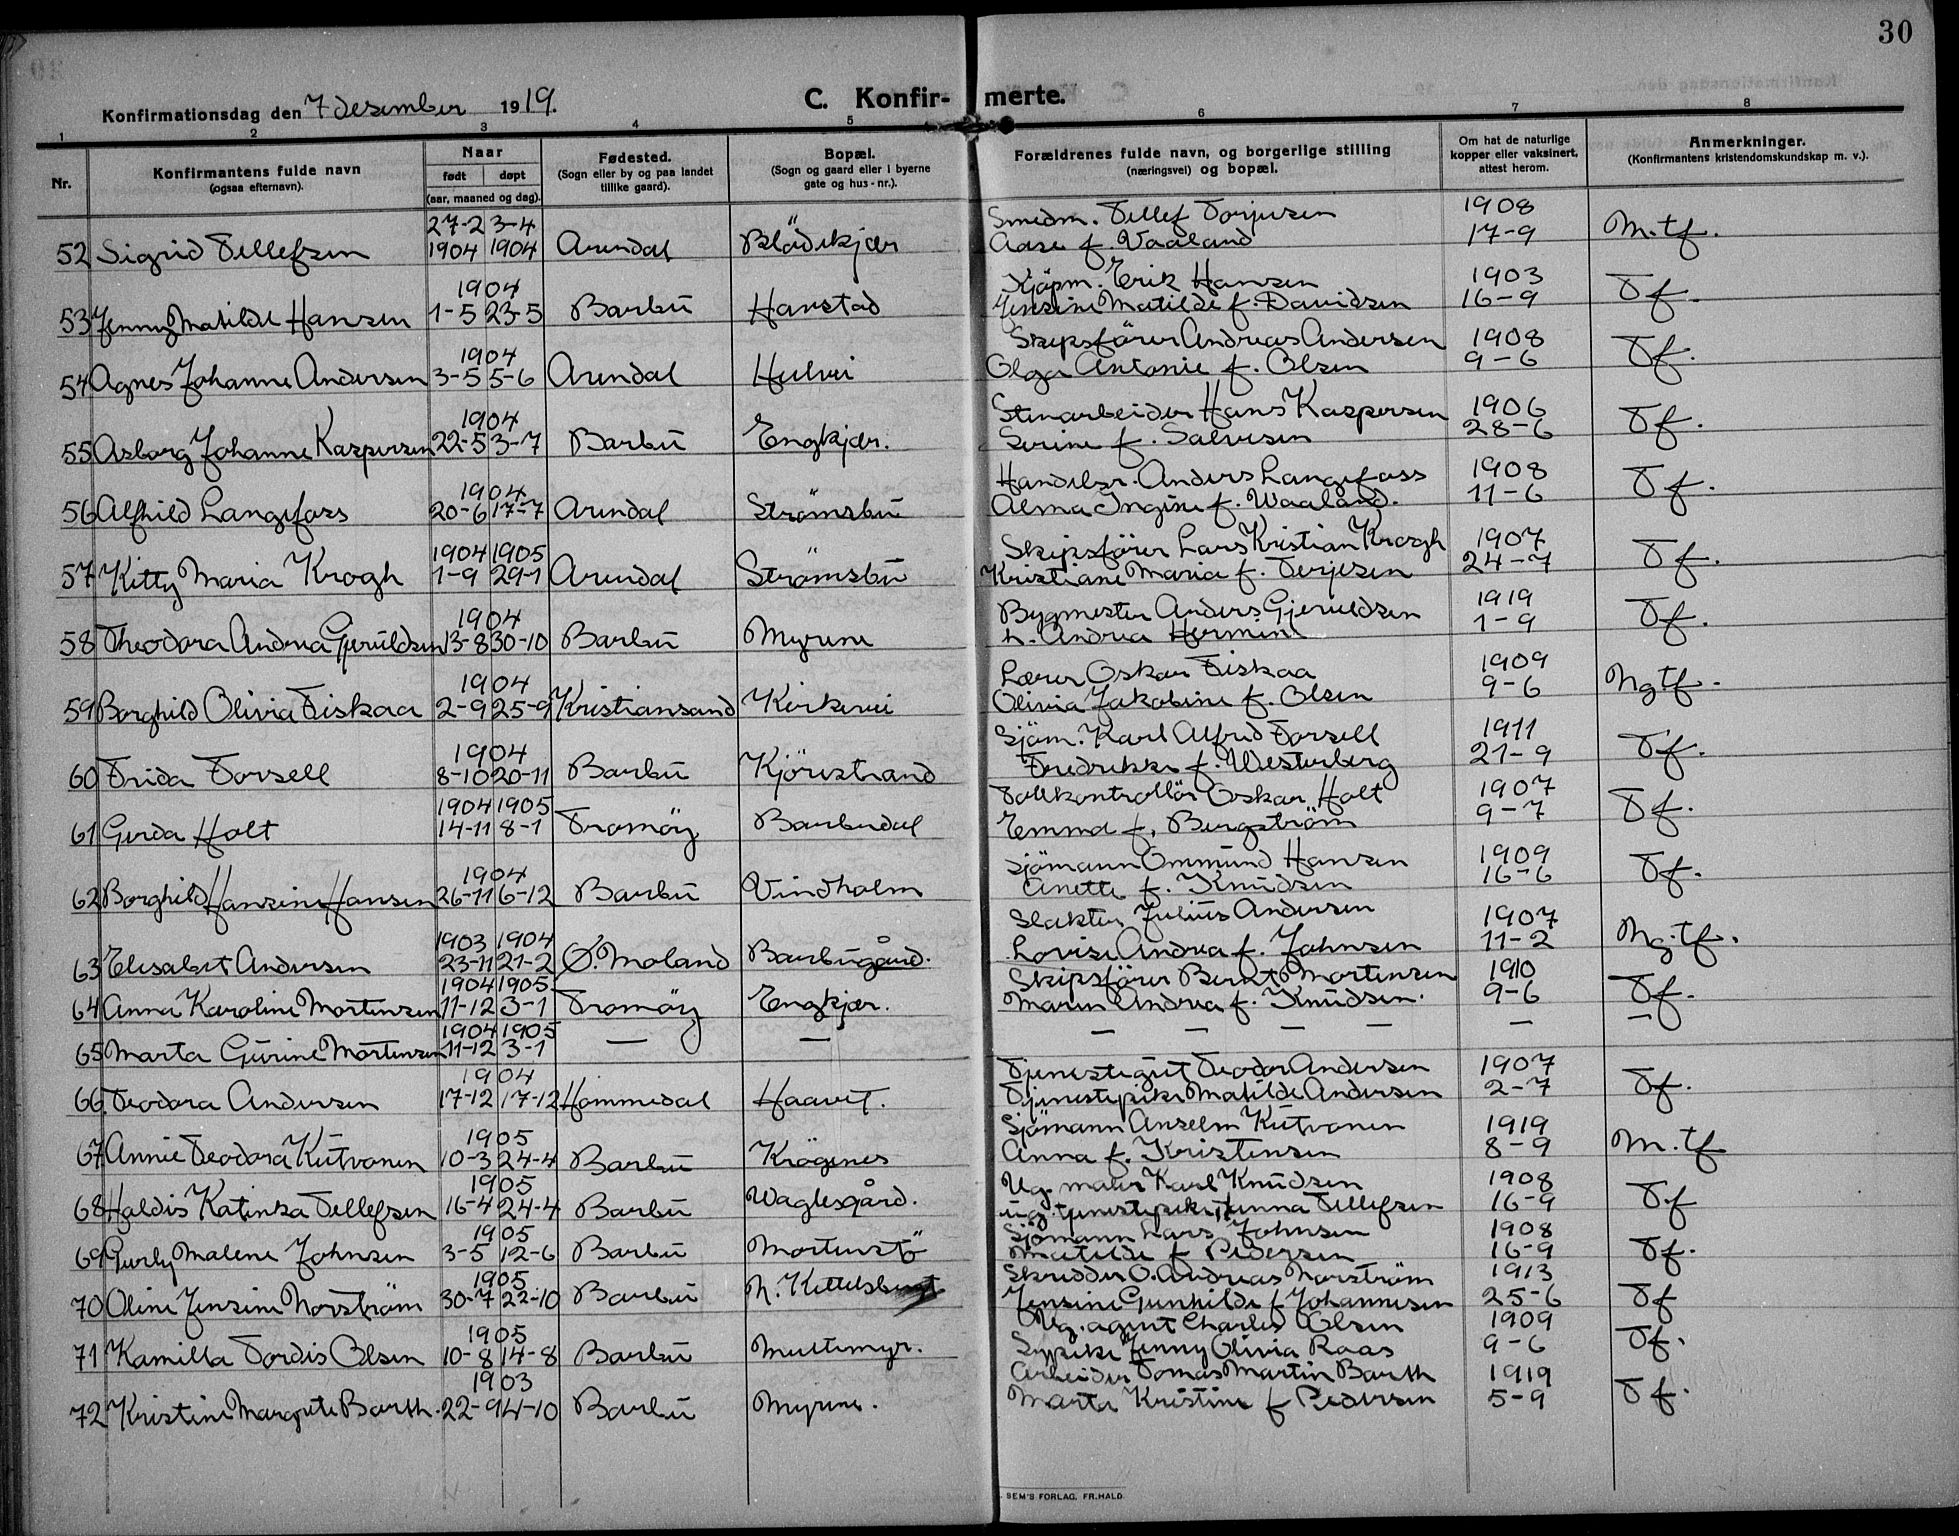 30
Konfirmationsdag den 7 desember 1919.
C. Konfir- merte.
1 2 3 4 5 6 7 8
Nr.
Konfirmantens fulde navn
(ogsaa efternavn).
Naar
født døpt
(aar, maaned og dag).
Fødested.
(Sogn eller by og paa landet
tillike gaard).
Bopæl.
(Sogn og gaard eller i byerne
gate og hus-nr.).
Forældrenes fulde navn, og borgerlige stilling
(næringsvei) og bopæl.
Om hat de naturlige
kopper eller vaksinert,
attest herom.
Anmerkninger.
(Konfirmantens kristendomskundskap m. v.).
27-2 3-4 Smedm. Tellef Torjusen 1908
52 Sigrid Tellefsen 1904 1904 Arendal Blödekjær Aase f. Vaaland 17-9 M.tf.
1904 Kjöpm. Erik Hansen 1903
53 Jenny Matilde Hansen 1-5 23-5 Barbu Harstad Jensine Matilde f. Davidsen 16-9 Tf.
1904 Skipsförer Andreas Andersen 1908
54 Agnes Johanne Andersen 3-5 5-6 Arendal Hulvei Olga Antonie f. Olsen 9-6 Tf.
1904 Stenarbeider Hans Kaspersen 1906
55 Asborg Johanne Kaspersen 22-5 3-7 Barbu Engkjær. Serine f. Salvesen 28-6 Tf.
1904 Handelsr. Anders Langefoss 1908
56 Alfhild Langefoss 20-6 17-7 Arendal Strömsbu Alma Ingine f. Waaland. 11-6 Tf.
1904 1905 Skipsförer Lars Kristian Krogh 1907
57 Kitty Maria Krogh 1-9 29-1 Arendal Strömsbu Kristiane Maria f. Terjesen 24-7 Tf.
1904 Bygmester Anders Gjeruldsen 1919
58 Theodora Andrea Gjeruldsen 13-8 30-10 Barbu Myrene h. Andrea Hermine 1-9 Tf.
1904 Lærer Oskar Fiskaa 1909
59 Borghild Olivia Fiskaa 2-9 25-9 Kristiansand Kirkevei Olivia Jakobine f. Olsen 9-6 Mgtf.
1904 Sjöm. Karl Alfred Forsell 1911
60 Frida Forsell 8-10 20-11 Barbu Kjörestrand Fredrikke f. Westerberg 21-9 Tf.
1904 1905 Tollkontrollör Oskar Holt 1907
61 Gerda Holt 14-11 8-1 Tromöy Barbudal Emma f. Bergström 9-7 Tf.
1904 Sjömann Ommund Hansen 1909
62 Borghild Hansine Hansen 26-11 6-12 Barbu Vindholm Anette f. Knudsen 16-6 Tf.
1903 1904 Slakter Julius Andersen 1907
63 Elisabet Andersen 23-11 21-2 Ø. Moland Barbugård. Lovise Andrea f. Johnsen 11-2 Mg.tf.
1904 1905 Skipsförer Bernt Mortensen 1910
64 Anna Karoline Mortensen 11-12 3-1 Tromöy Engkjær. Maren Andrea f. Knudsen. 9-6 Tf.
1904 1905 — — — — — —
65 Marta Gurine Mortensen 11-12 3-1 — —
1904 Tjenestegut Teodor Andersen 1907
66 Teodora Andersen 17-12 17-12 Hommedal Haavet. Tjenestepike Matilde Andersen 2-7 Tf.
1905 Sjömann Anselm Kutvonen 1919
67 Annie Teodora Kutvonen 10-3 24-4 Barbu Krögenes Anna f. Kristensen 8-9 M.tf
1905 Ug. murer Karl Knudsen 1908
68 Haldis Katinka Tellefsen 16-4 24-4 Barbu Waglesgård. ug. tjenestepike Hanna Tellefsen 16-9 Tf
1905 Sjömann Lars Johnsen 1908
69 Gurly Malene Johnsen 3-5 12-6 Barbu Mortenstö Matilde f Pedersen 16-9 Tf.
1905 Skredder O. Andreas Norström 1913
70 Oline Jensine Norström 30-7 22-10 Barbu N. Kittelsbugt Jensine Gunhilde f Johannesen 25-6 Tf
1905 Ug. agent Charles Olsen 1909
71 Kamilla Tordis Olsen 10-8 14-8 Barbu Multemyr. Sypike Jenny Olivia Raas 9-6 Tf.
1903 Arbeider Tomas Martin Barth 1919
72 Kristine Margrete Barth. 22-9 4-10 Barbu Myrene. Marta Kristine f Pedersen 5-9 Tf.
SEM'S FORLAG, FR.HALD.